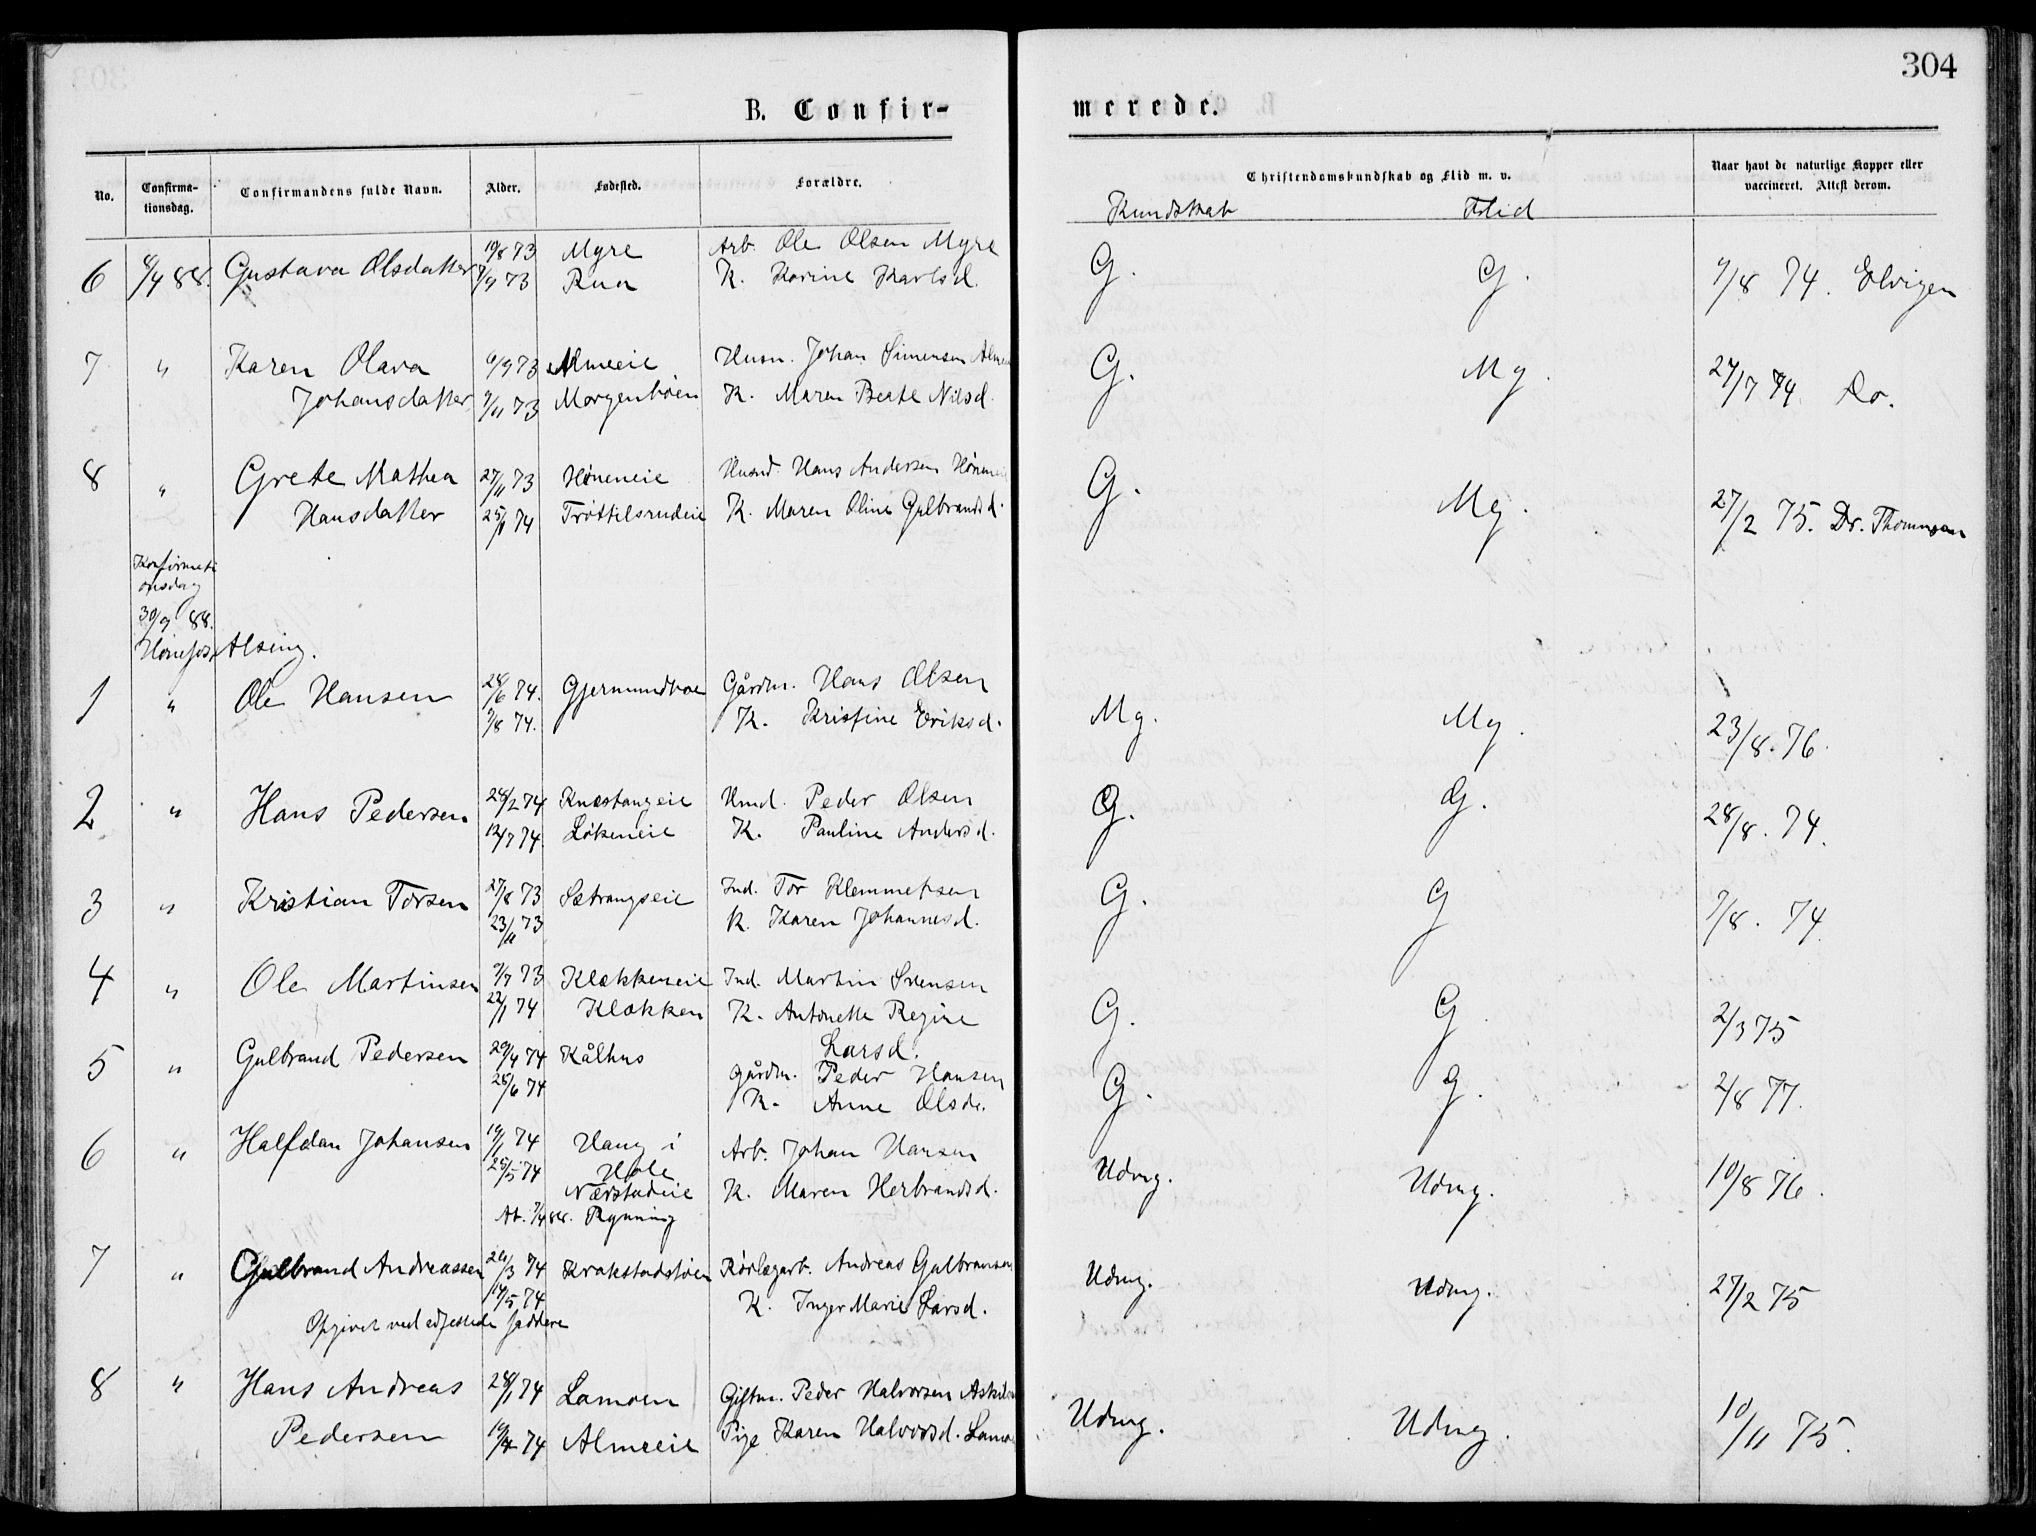 304
B. Confir-
merede.
No. Confirma-tionsdag. Confirmandens fulde Navn. Alder. Fødested. Forældre. Christendomskundskab og Flid m. v. Naar havt de naturlige Kopper eller vaccineret. Attest derom.
Kundskab Flid
6 8/4 88. Gustava Olsdatter 19/8 73 Myre Arb. Ole Olsen Myre G. G. 9/8 74. Elvigen
7/9 73 Rua K. Karine Karlsd.
7 " Karen Olava 6/9 73 Almeeie Husm. Johan Simensen G. Mg. 24/7 74. Do.
Johansdatter 9/11 73 Morgenbøen K. Maren Beate Nilsd.
8 " Grete Mathea 27/11 73 Høneneie Husmd. Hans Andersen G. Mg. 27/2 75. Dr. Thomesen
Hansdatter 25/1 74 Trøttilsrudeie K. Maren Oline Gulbrandsd.
Konfirmati
onsdag
30/9 88.
Hønefos Alsing.
1 " Ole Hansen 28/6 74. Gjermundboe Gårdm. Hans Olsen Mg. Mg. 23/8. 76.
9/8 74. K. Kristine Eriksd.
2 " Hans Pedersen 28/2 74 Knæstangeie Hmd. Peder Olsen G. G. 28/8. 74.
12/7 74. Løkeneie K. Pauline Andersd.
3 " Kristian Torsen 27/8 73 Sætrangseie Ind. Tor Klemmetsen G. G 9/8. 74.
23/11 73 K. Karen Johannesd.
4 " Ole Martinsen 9/7 73 Klækkeneie Ind. Martin Svensen G. G. 2/3 75
22/1 74 Klækken K. Antonette Regine
Larsd.
5 " Gulbrand Pedersen 29/4 74 Kålhus Gårdm. Peder Hansen G. G. 2/8 77.
28/6 74 K. Anne Olsd.
6 " Halfdan Johansen 19/1 74 Haug i Arb. Johan Hansen Udmg. Udmg. 10/8 76.
25/5 74 Hole
Nærstadeie K. Maren Herbrandsd.
At. 7/4 88. Rynning
7 " Gulbrand Andreassen 26/3 74 Krakstadsløen Rørlægarb. Andreas Gulbransen Udmg. Udmg. 27/2 75
14/5 74 K. Inger Marie Larsd.
Opgivet ved edfestede faddere
8 " Hans Andreas 28/1 74 Lamoen Giftm. Peder Halvorsen Udmg. Udmg. 10/11 75.
Pedersen 19/4 74 Almeeie Pige Karen Halvorsd.